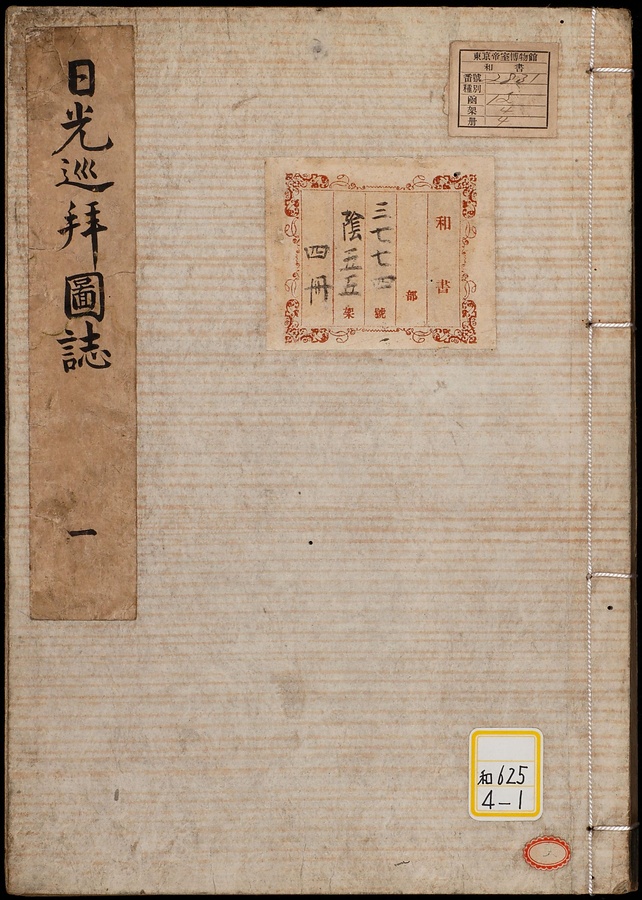 日光巡拜圖誌
一
東京帝室博物館
和書
番號 2831
種別
凾 15
架 4
册 4
和書
部
三七七四號
陰五五架
四冊
和625
4-1